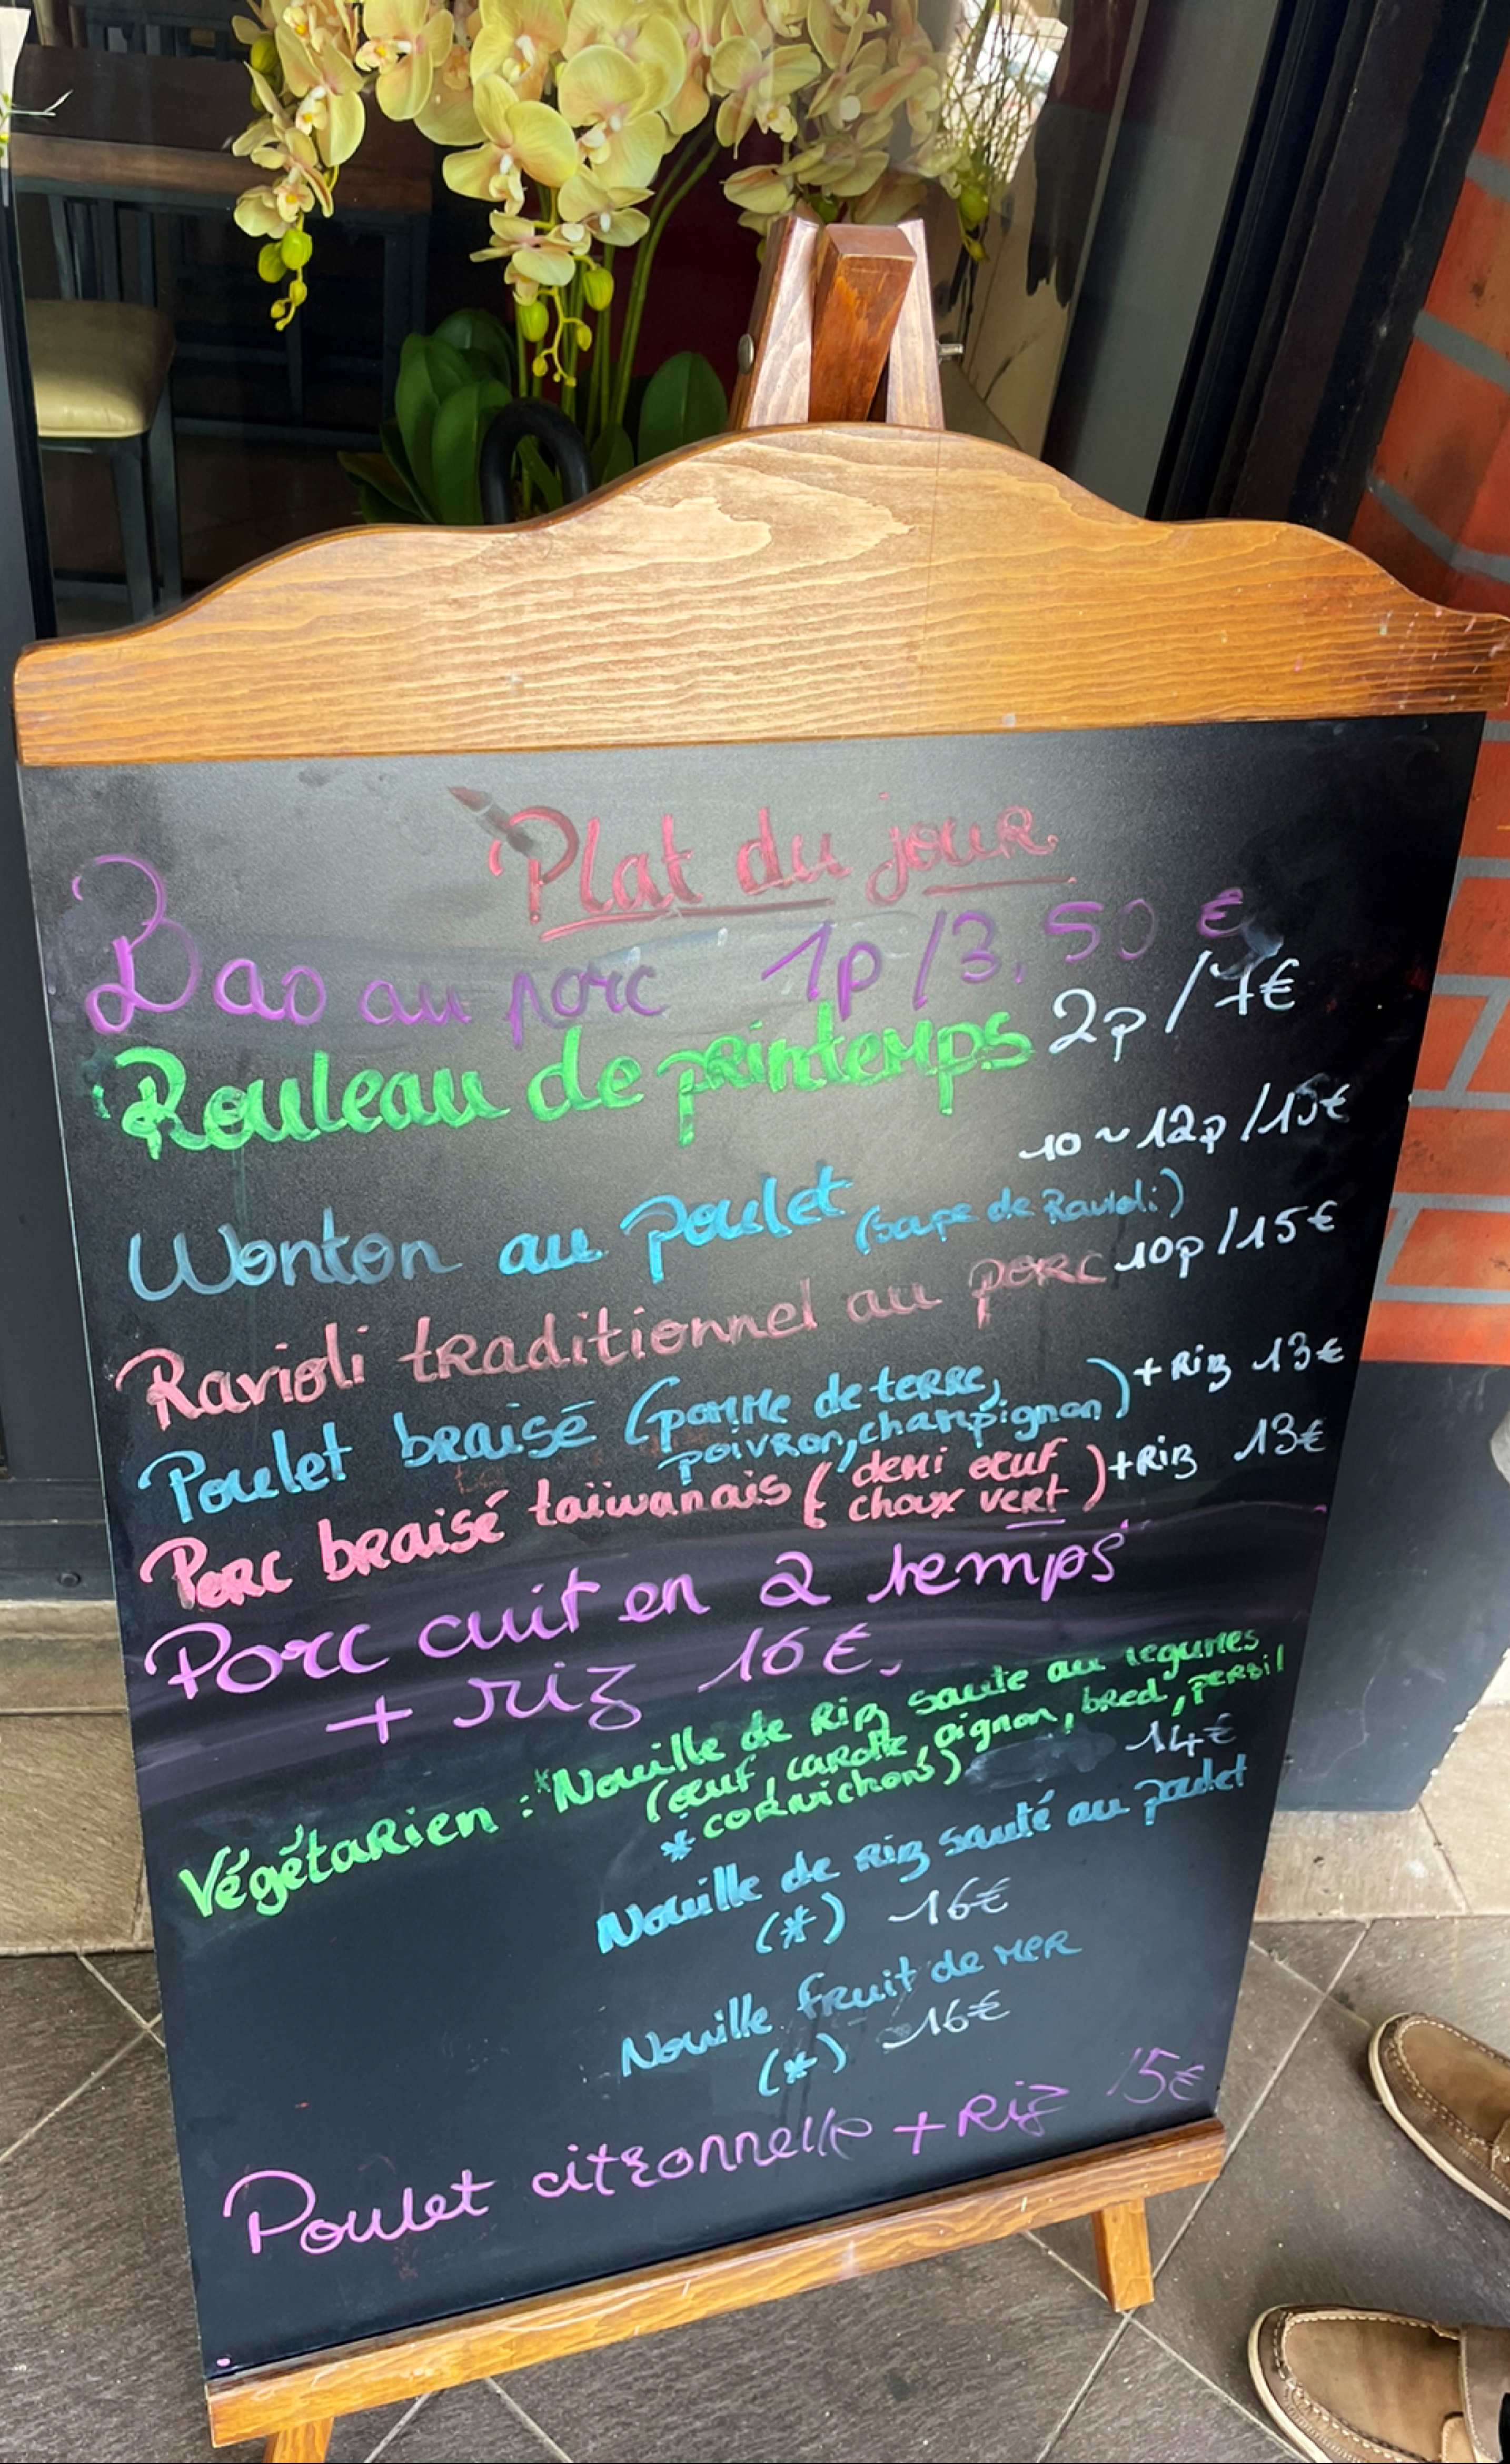 Plat du jour
Bao au porc 1p/3,50 €
Rouleau de printemps 2p/7€
10~12p/15€
Wonton au poulet (Sape de Ravioli)
Ravioli traditionnel au porc 10p/15€
Poulet braisé (pomme de terre, + Riz 13€
poivron, champignon)
Porc braisé taïwanais (demi œuf +Riz 13€
choux vert)
Porc cuit en 2 temps
+ riz 16€.
Végétarien : *Nouille de Riz sauté au légumes
(œuf, carotte, oignon, bred, persil
* cornichons) 14€
Nouille de riz sauté au poulet
(*) 16€
Nouille fruit de mer
(*) 16€
Poulet citronnelle + Riz 15€